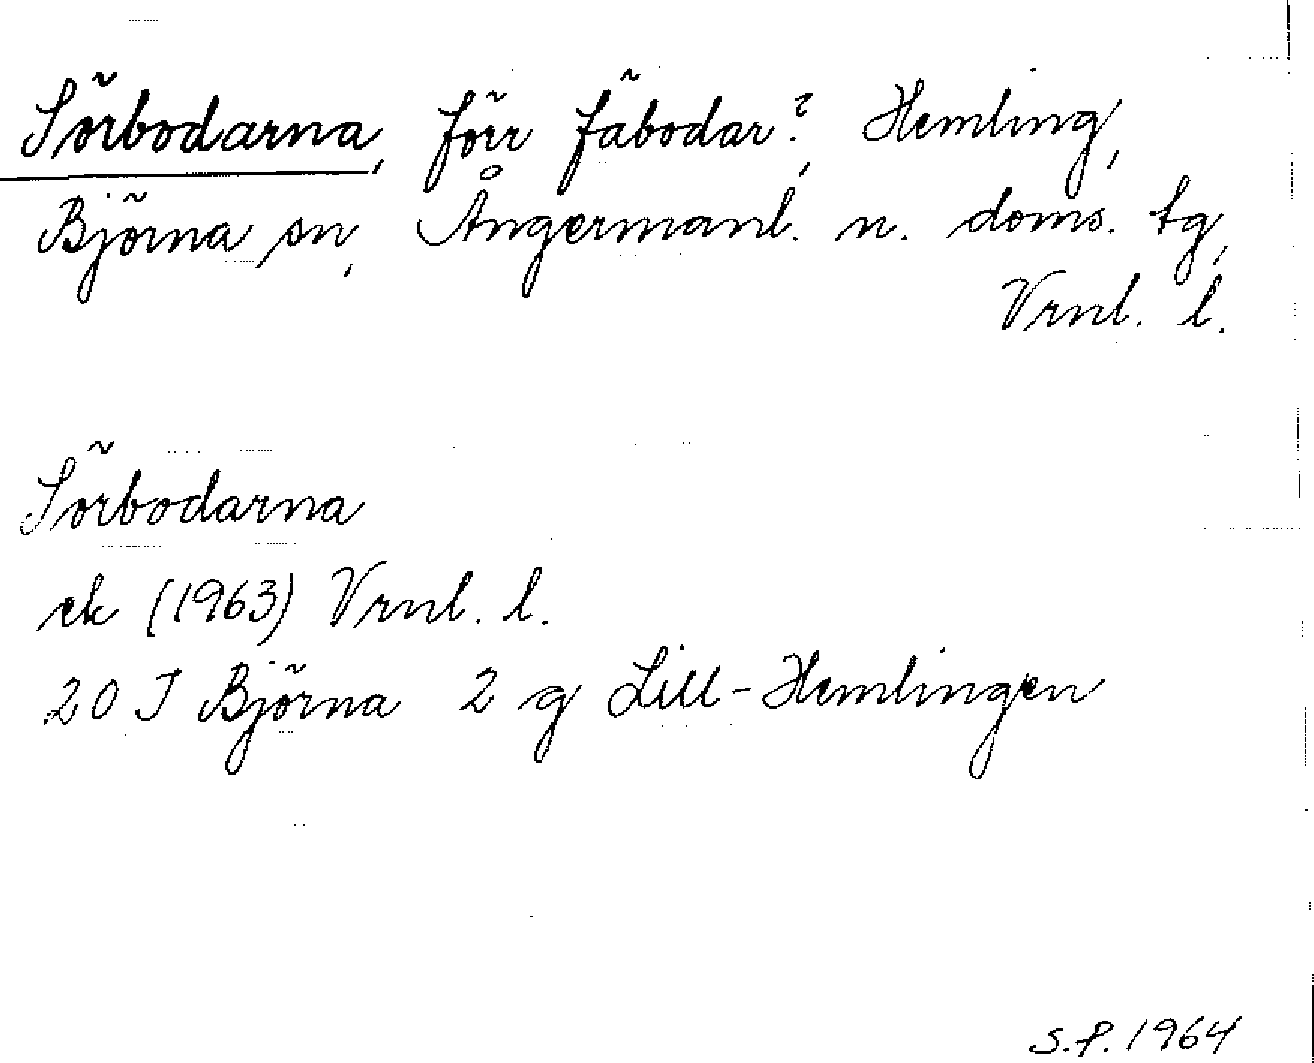 Sörbodarna, förr fäbodar?, Hemling,
Björna sn, Ångermanl. n. doms. tg,
Vrnl. l.
Sörbodarna
ek (1963) Vrnl. l.
20 J Björna 2 g Lill-Hemlingen
S.P. 1964